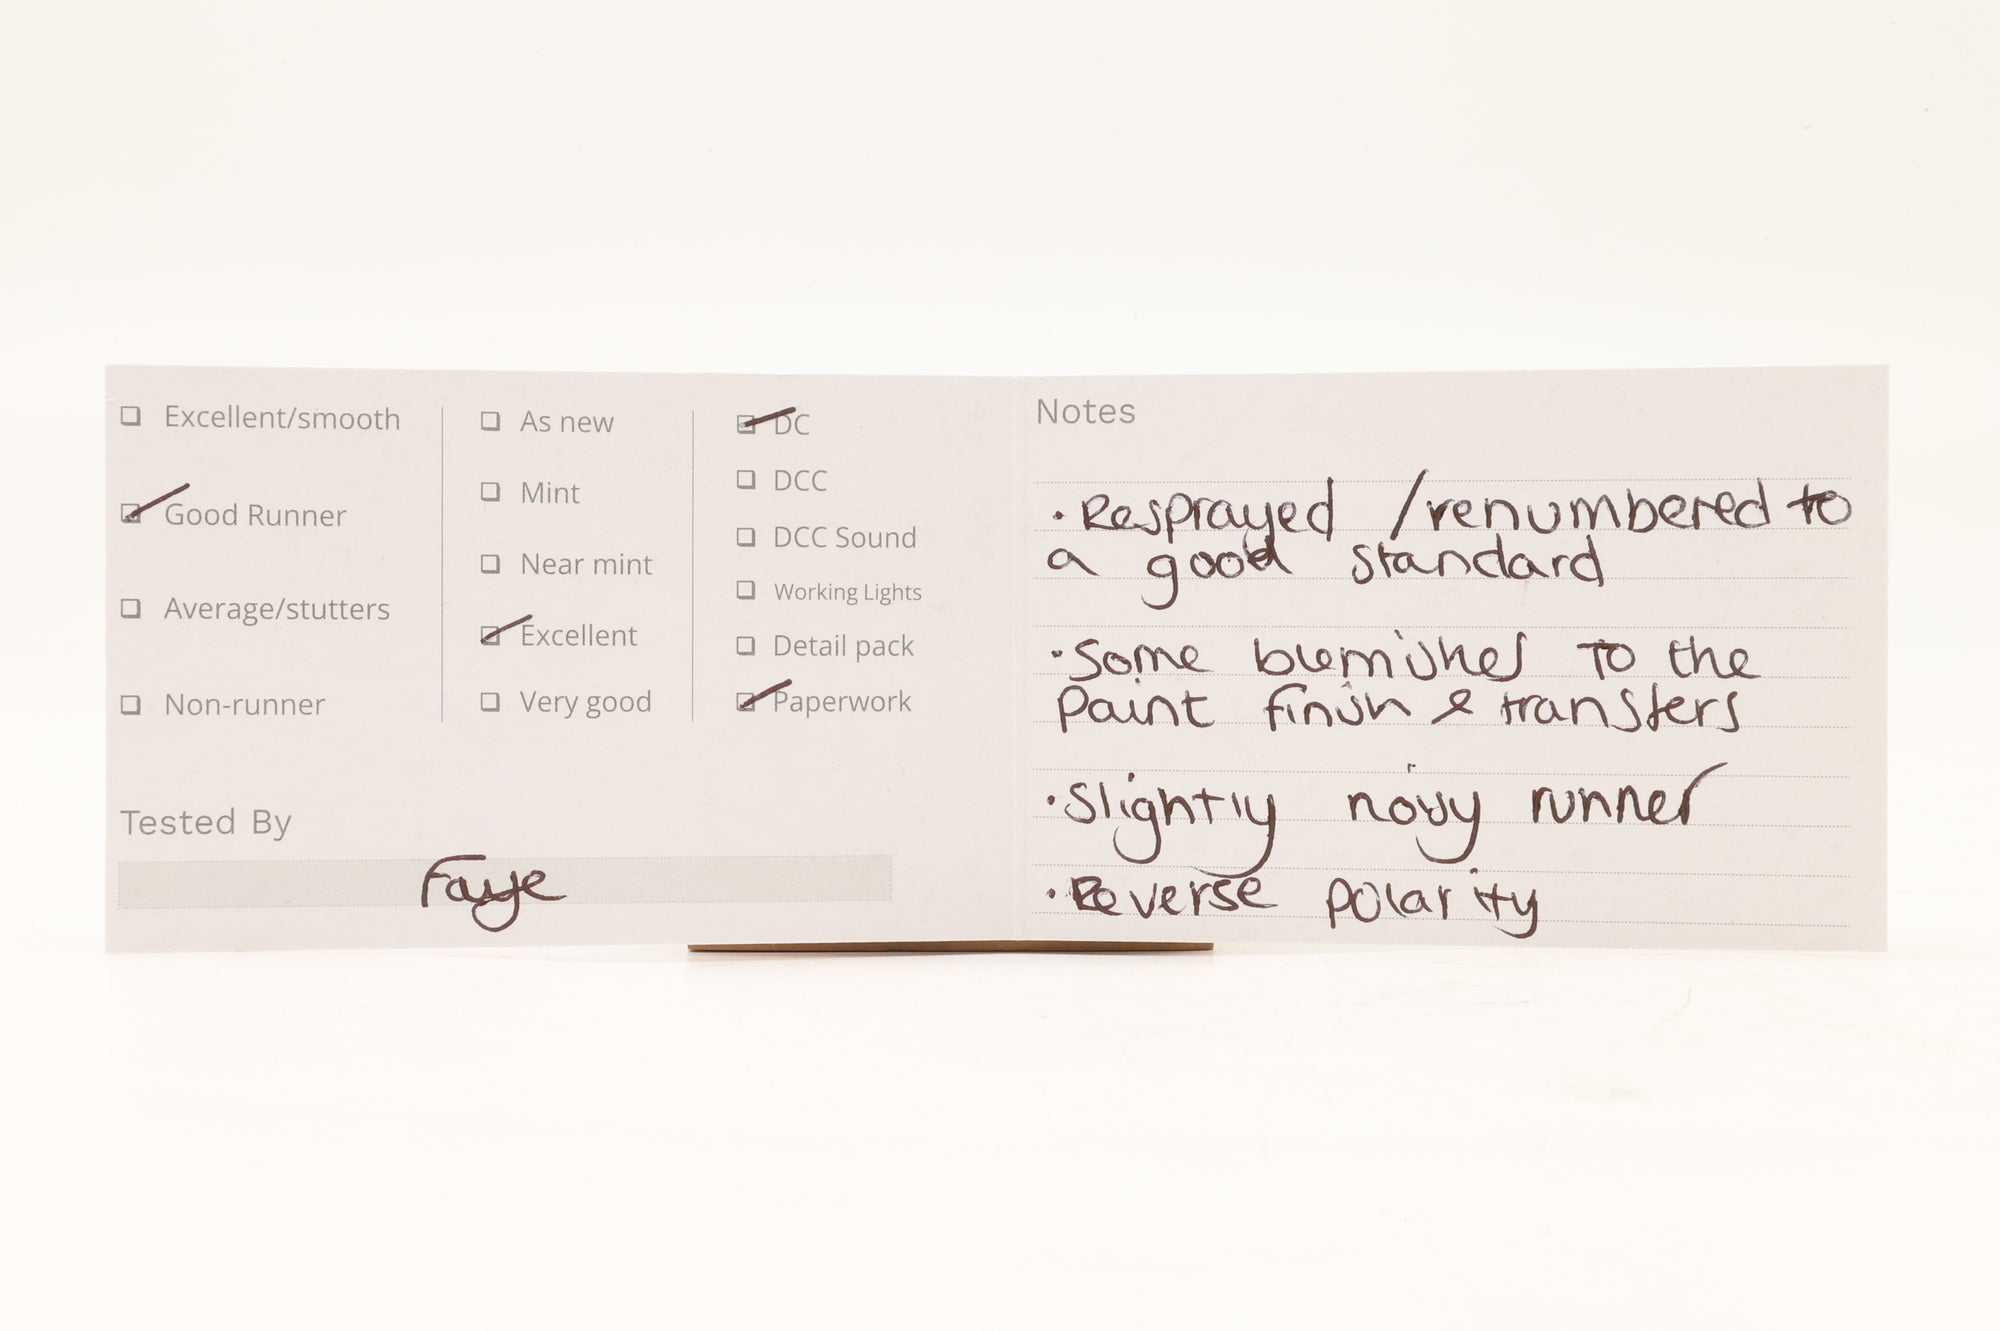 Excellent/smooth
Good Runner
Average/stutters
Non-runner
As new
Mint
Near mint
Excellent
Very good
DC
DCC
DCC Sound
Working Lights
Detail pack
Paperwork
Tested By
Faye
Notes
· Resprayed / renumbered to
a good standard
· Some blemishes to the
paint finish & transfers
· Slightly noisy runner
· Reverse polarity